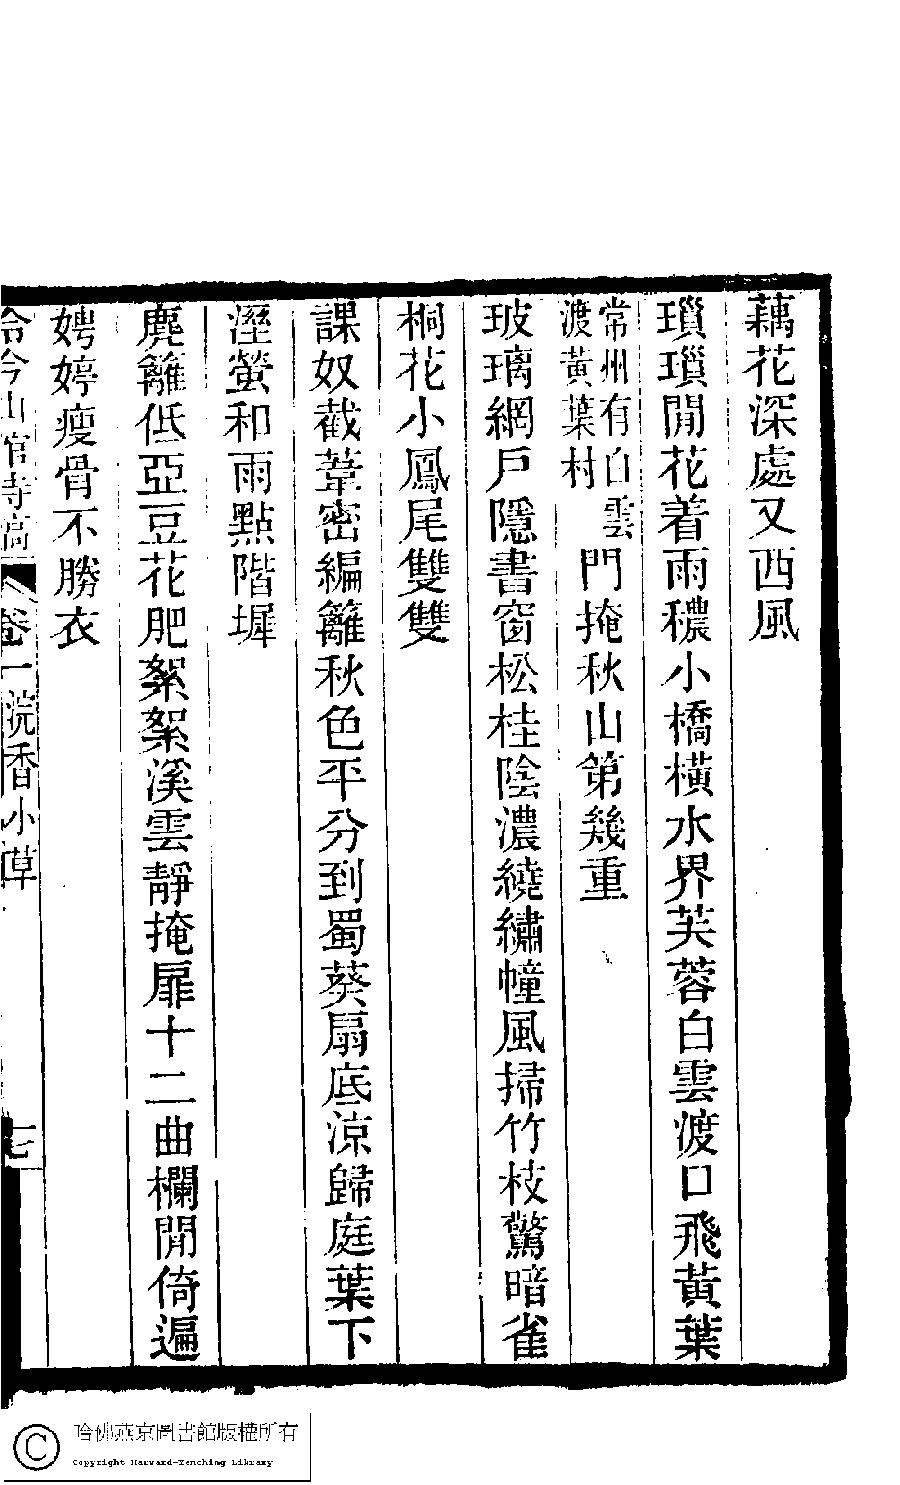 藕花深處又西風
瑣瑣閒花着雨穠小橋橫水界芙蓉白雲渡口飛黃葉
常州有白雲
渡黃葉村
門掩秋山第幾重
玻璃網戶隱書窗松桂陰濃繞繡幢風掃竹枝驚暗雀
桐花小鳳尾雙雙
課奴截葦密編籬秋色平分到蜀葵扇底涼歸庭葉下
溼螢和雨點階墀
麂籬低亞豆花肥絮絮溪雲靜掩扉十二曲欄閒倚遍
娉婷瘦骨不勝衣
泠泠山館詩稿 卷一浣香小草 七
哈佛燕京圖書館版權所有
Copyright Harvard-Yenching Library